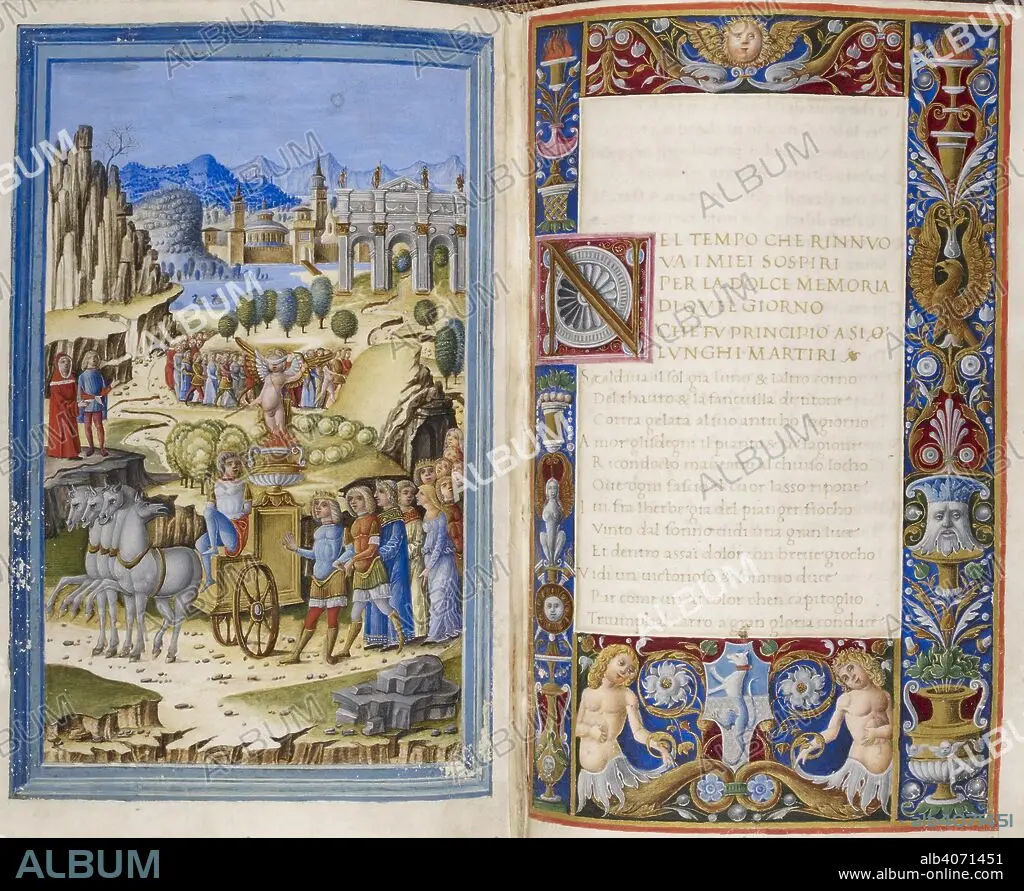 NEL TEMPO CHE RINNVO
VA I MIEI SOSPIRI
PER LA DOLCE MEMORIA
DI QVEL GIORNO
CHE FV PRINCIPIO A SI LO
LVNGHI MARTIRI
Scaldaua il sol gia luno & laltro corno
Del thauro & la fanciulla di
Correa gelata al suo anticho giorno
Amor gli sdegni il pianto & la stagione
Ricondocto maueano al chiuso locho
Oue ogni fascio il cuor lasso ripone
fra lherbe gia del pianger fiocho
Vinto dal sonno uidi una gran luce
Et dentro assai dolor con breue giocho
Vidi un uictorioso & sommo duce
Pur com un di color chen capitoglio
Triumphal carro a gran gloria conduce
ALBUM
alb4071451
www.album-online.com